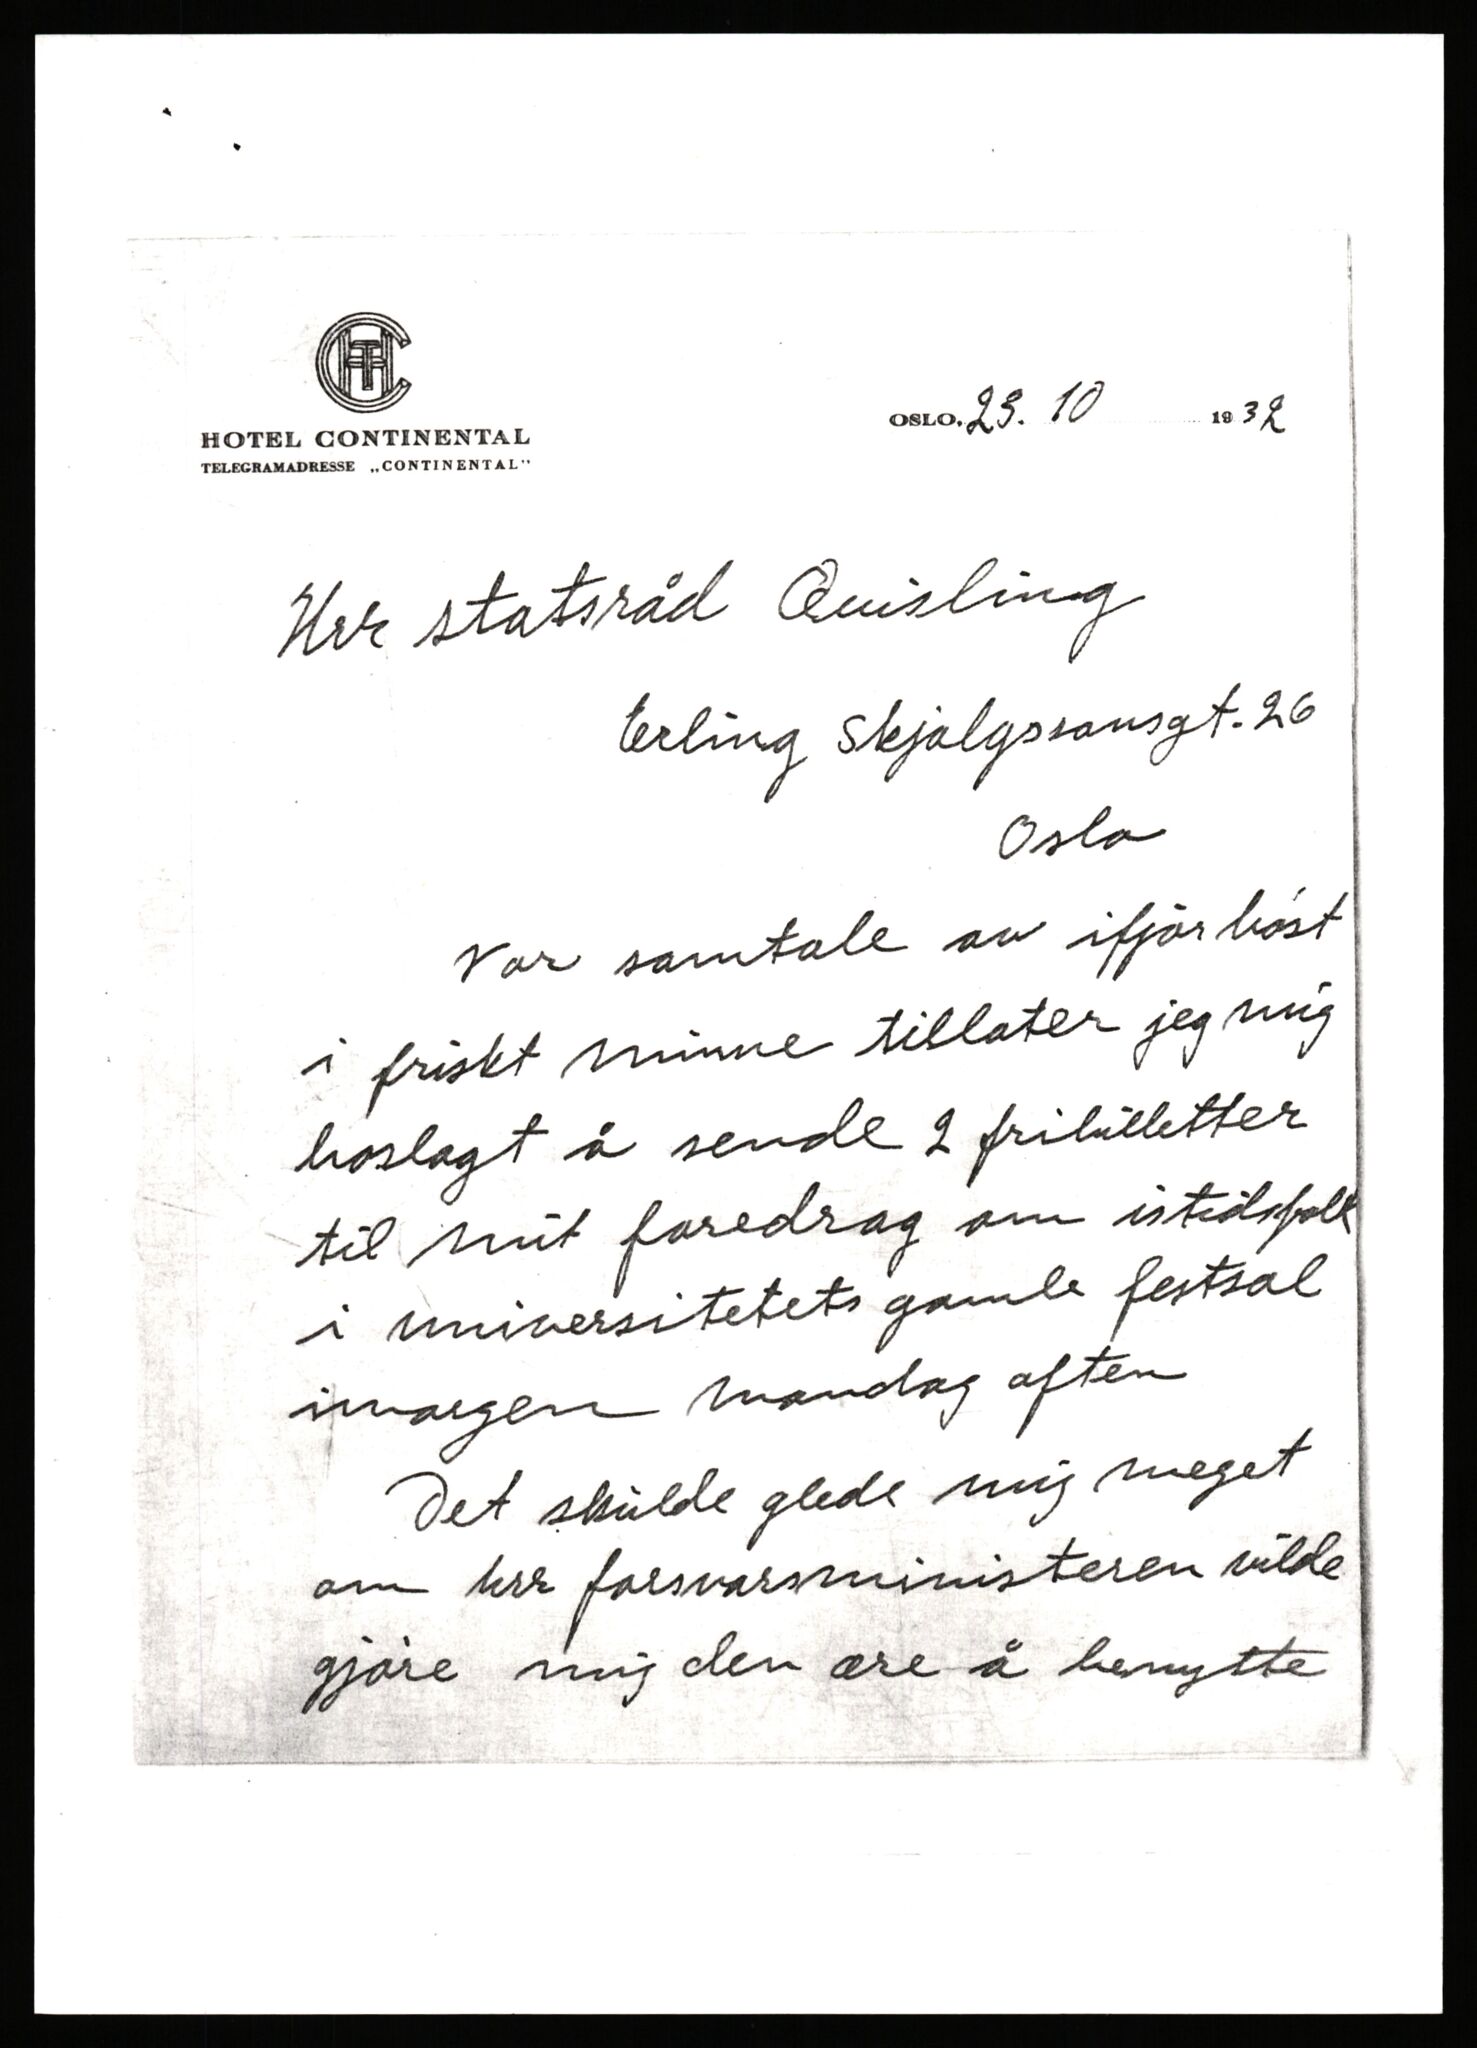 CHT
HOTEL CONTINENTAL
TELEGRAMADRESSE „CONTINENTAL"
OSLO, 23. 10 1932
Herr statsråd Quisling
Erling Skjalgssonsgt. 26
Oslo
Vor samtale av ifjor høst
i friskt minne tillater jeg mig
hoslagt å sende 2 fribilletter
til mit foredrag om istidsfolk
i universitetets gamle festsal
imorgen mandag aften
Det skulde glede mig meget
om herr forsvarsministeren vilde
gjøre mig den ære å benytte